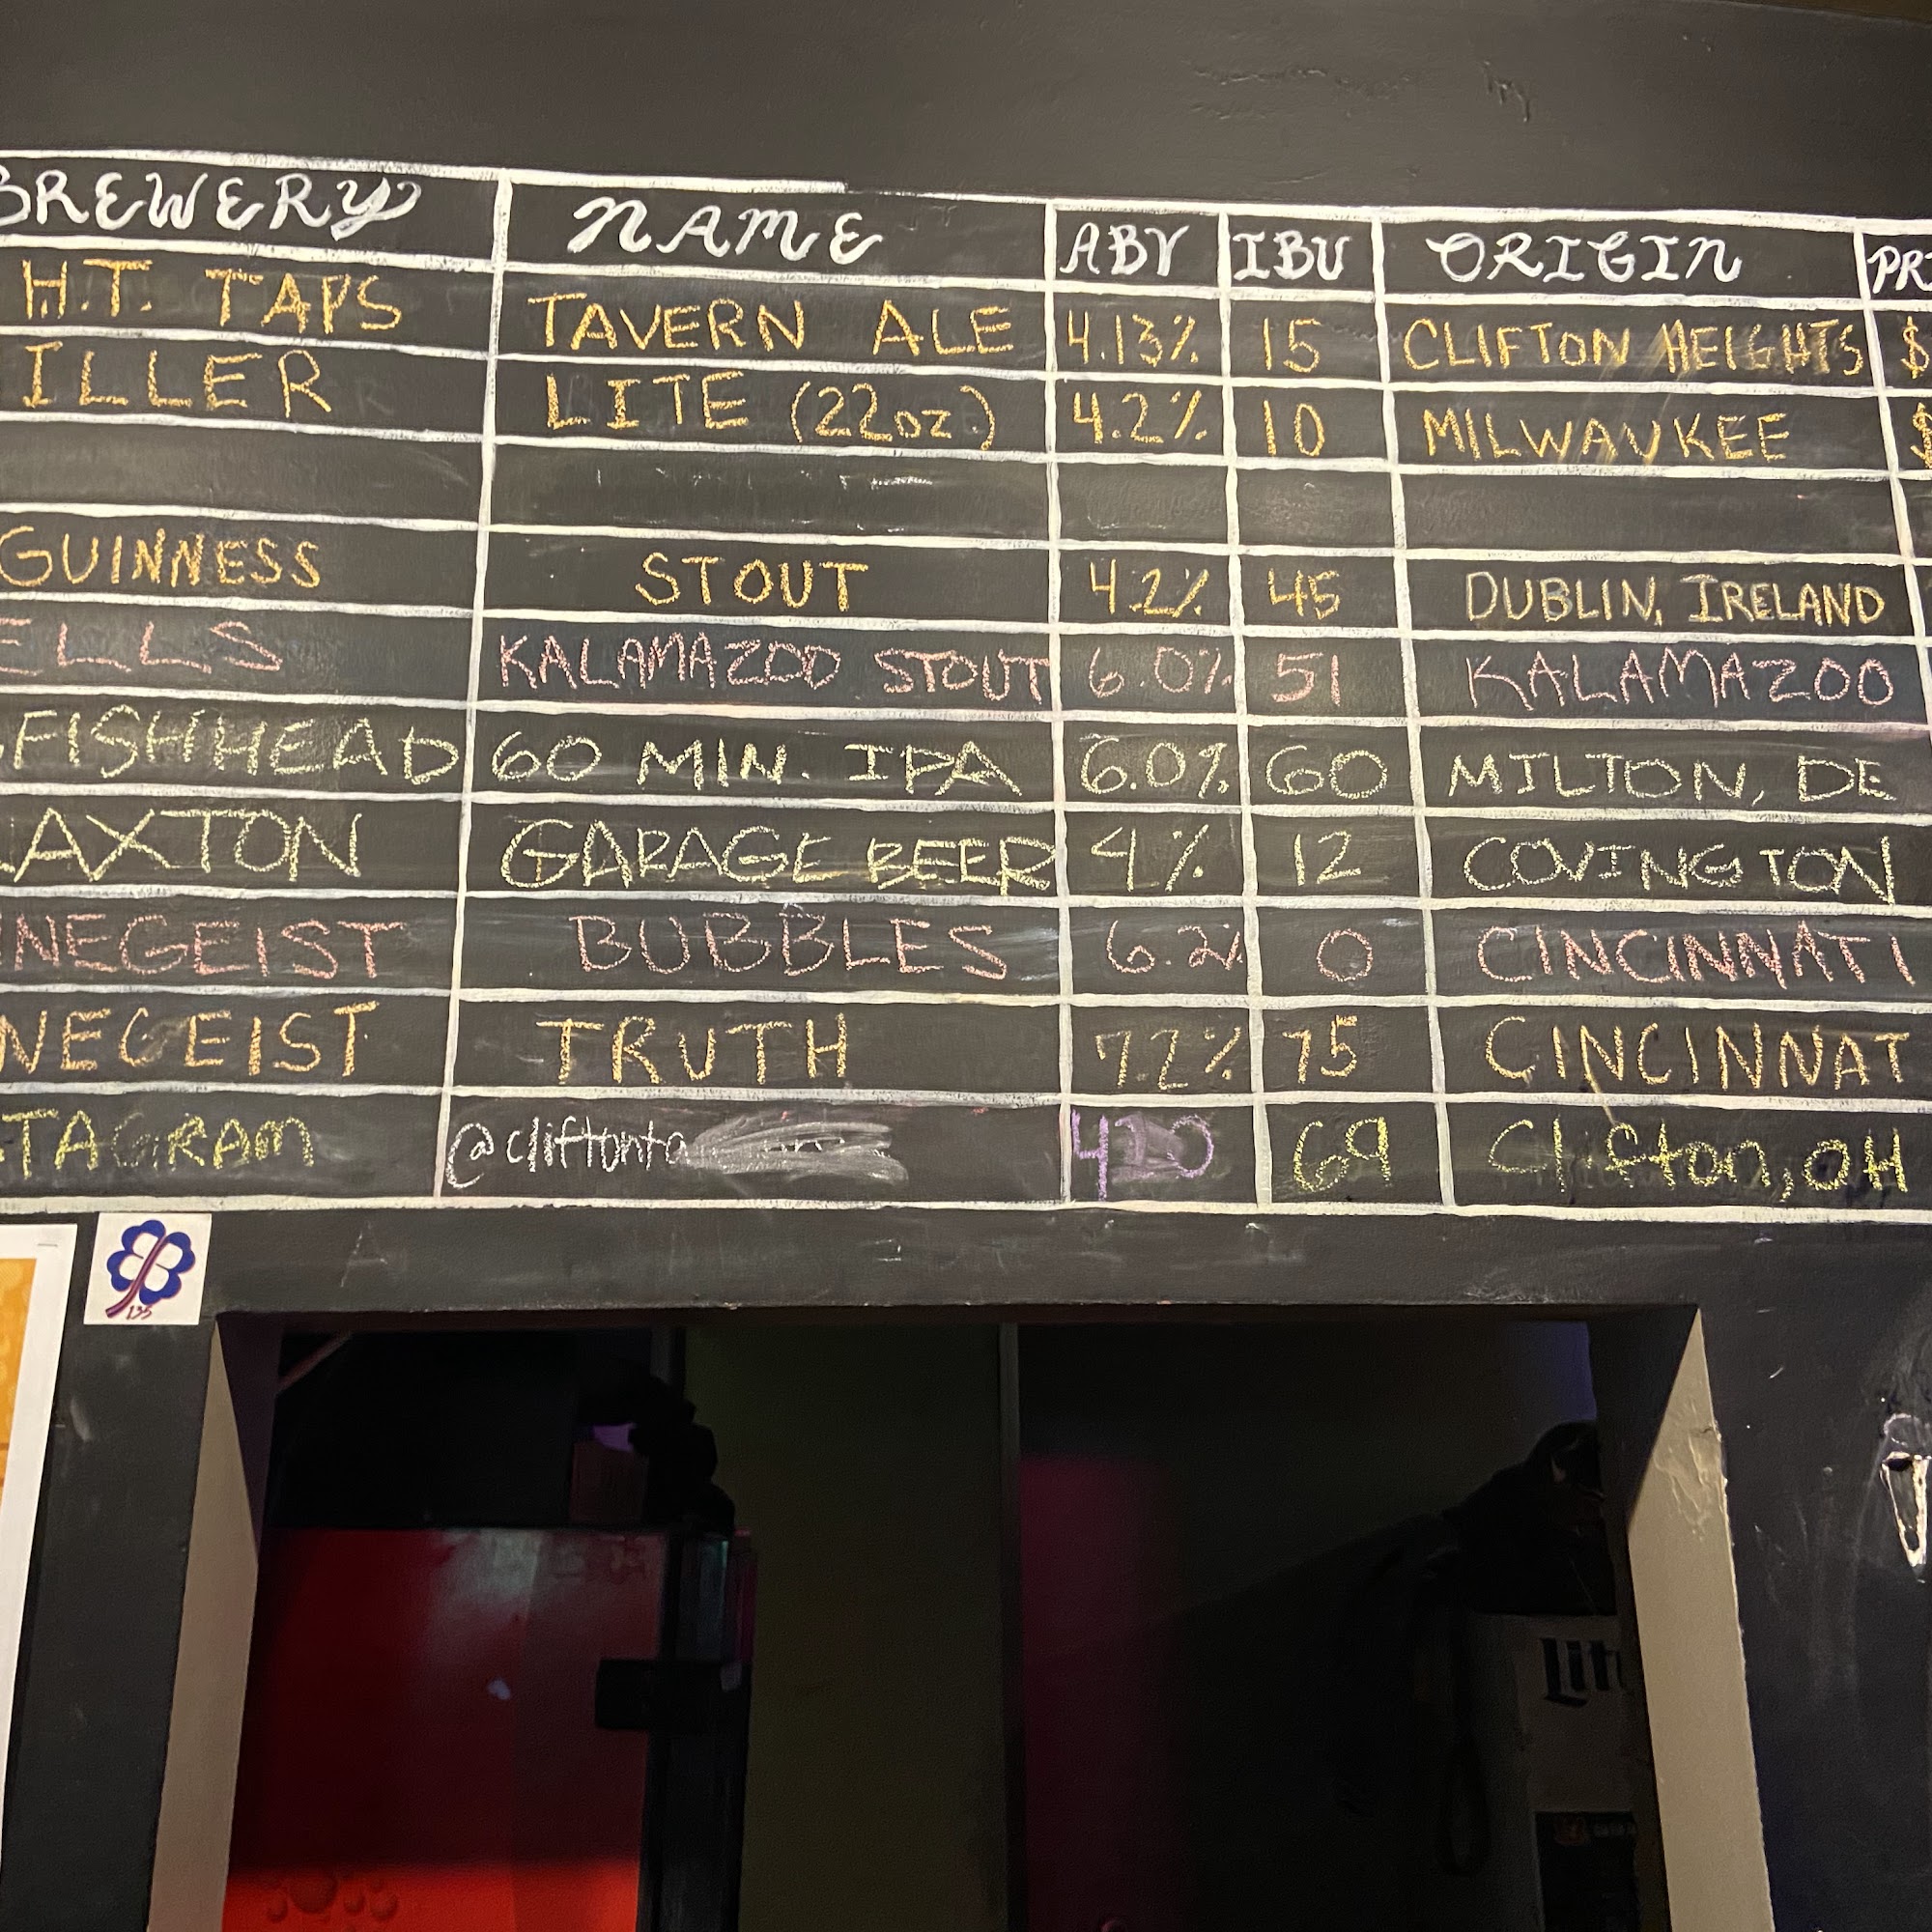 BREWERY NAME ABV IBU ORIGIN PRI
H.T. TAPS TAVERN ALE 4.13% 15 CLIFTON HEIGHTS $
ILLER LITE (22oz) 4.2% 10 MILWAUKEE $
GUINNESS STOUT 4.2% 45 DUBLIN, IRELAND
ELLS KALAMAZOO STOUT 6.0% 51 KALAMAZOO
FISHHEAD 60 MIN. IPA 6.0% 60 MILTON, DE
AXTON GARAGE BEER 4% 12 COVINGTON
NEGEIST BUBBLES 6.2% 0 CINCINNATI
NEGEIST TRUTH 7.2% 75 CINCINNAT
TAGRAM @cliftonta 69 Clifton, OH
135
Lit